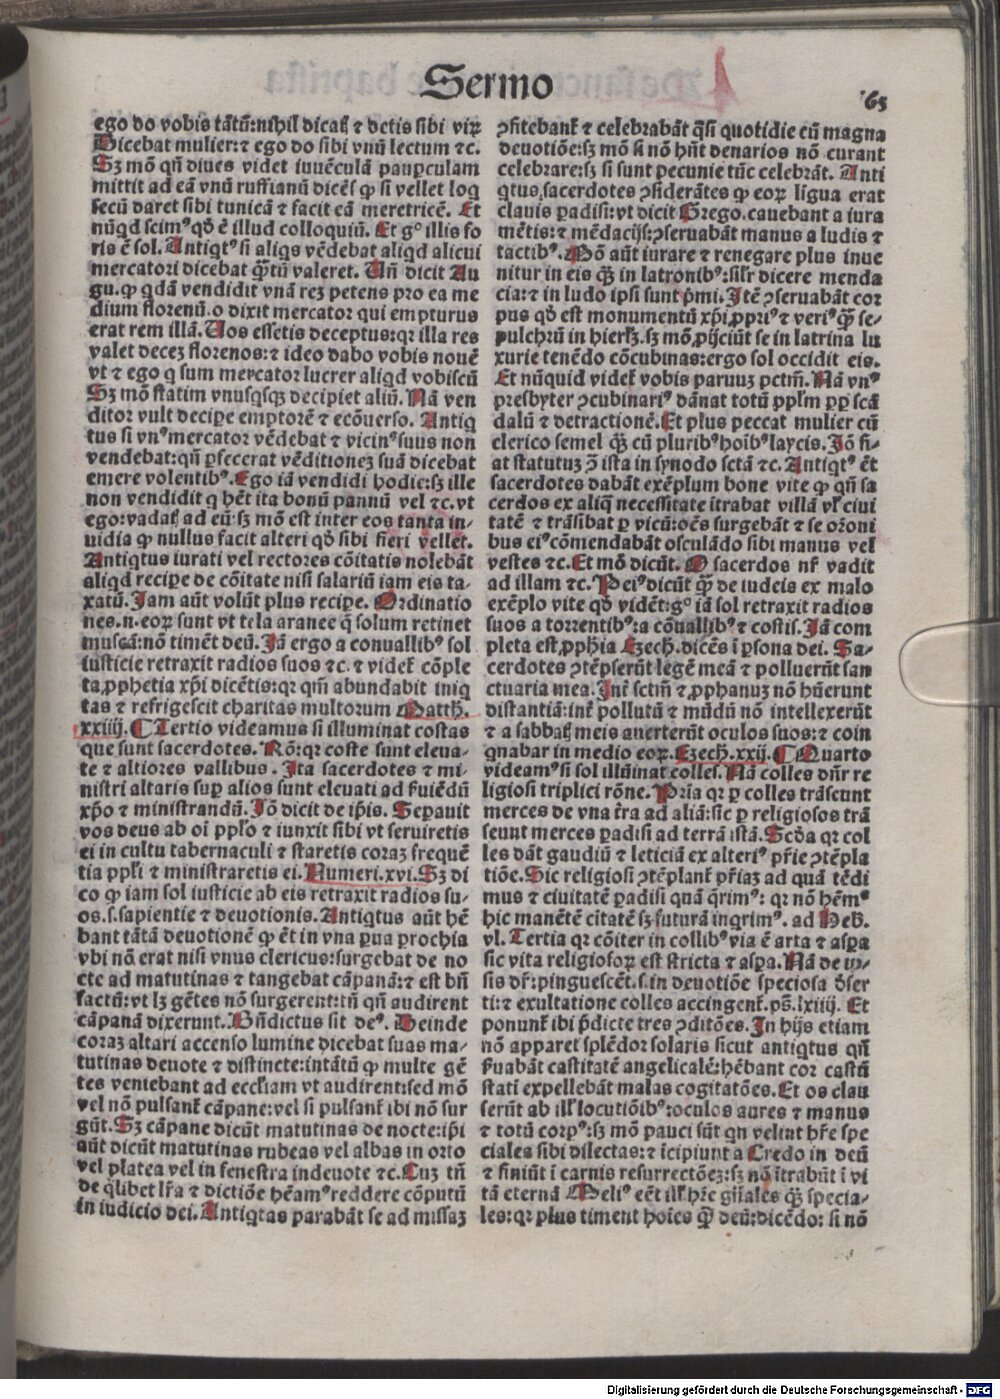 Sermo
65
ego do vobis tātū: nihil dicat̄ ⁊ detis sibi viꝝ
Dicebat mulier: ⁊ ego do sibi vnū lectum ⁊c.
Sꝫ mō qn̄ diues videt iuuēculā pauꝑculam
mittit ad eā vnū ruffianū dicēs̄ ꝙ si vellet loq
secū daret sibi tunicā ⁊ facit eā meretricē. Et
nūqd scimꝰ qđ ē illud colloquiū. Et gͦ illis fo
ris ē sol. Antiqtꝰ si aliqs vēdebat aliqd alicui
mercatori dicebat qͣ̄tū valeret. Un̄ dicit Au
gu. ꝙ qdā vendidit vnā reꝫ petens pro ea me
dium florenū. o dixit mercator qui empturus
erat rem illā. Uos essetis deceptus: qꝛ illa res
valet deceꝫ florenos: ⁊ ideo dabo vobis nouē
vt ⁊ ego q sum mercator lucrer aliqd vobiscū
Sꝫ mō statim vnusqsqꝫ decipiet aliū. Nā ven
ditor vult decipe emptorē ⁊ ecōuerso. Antiq
tus si vnꝰ mercator vēdebat ⁊ vicinꝰ suus non
vendebat: qn̄ ꝑfecerat vēditioneꝫ suā dicebat
emere volentibꝰ. Ego iā vendidi hodie: sꝫ ille
non vendidit q hēt ita bonū pannū vel ⁊c. vt
ego: vadat̄ ad eū: sꝫ mō est inter eos tanta in-
uidia ꝙ nullus facit alteri qđ sibi fieri vellet.
Antiqtus iurati vel rectores cōitatis nolebāt
aliqd recipe de cōitate nisi salariū iam eis ta-
xatū. Jam aūt volūt plus recipe. Ordinatio
nes. n. eoꝝ sunt vt tela aranee q̄ solum retinet
muscā: nō timēt deū. Jā ergo a conuallibꝰ sol
iusticie retraxit radios suos ⁊c. ⁊ videt̄ cōple
ta ꝓphetia xp̄i dicētis: qꝛ qm̄ abundabit iniq
tas ⁊ refrigescit charitas multorum Matth.
xxiiij. ¶ Tertio videamus si illuminat costas
que sunt sacerdotes. Rō: qꝛ coste sunt eleua-
te ⁊ altiores vallibus. Jta sacerdotes ⁊ mi-
nistri altaris suꝑ alios sunt eleuati ad ẜuiēdū
xp̄o ⁊ ministrandū. Jō dicit de ip̄is. Sepauit
vos deus ab oī pplo ⁊ iunxit sibi vt seruiretis
ei in cultu tabernaculi ⁊ staretis coraꝫ frequē
tia ppli ⁊ ministraretis ei. Numeri. xvi. Sꝫ di
co ꝙ iam sol iusticie ab eis retraxit radios su-
os. s. sapientie ⁊ deuotionis. Antiqtus aūt hē
bant tātā deuotionē ꝙ ēt in vna ꝑua prochia
vbi nō erat nisi vnus clericus: surgebat de no
cte ad matutinas ⁊ tangebat cāpanā: ⁊ est bn̄
factū: vt lꝫ gētes nō surgerent: tn̄ qn̄ audirent
cāpanā dixerunt. Bn̄dictus sit deꝰ. Deinde
coraꝫ altari accenso lumine dicebat suas ma-
tutinas deuote ⁊ distincte: intātū ꝙ multe gē
tes veniebant ad eccl̄iam vt audirent: sed mō
vel nō pulsant̄ cāpane: vel si pulsant̄ ibi nō sur
gūt. Sꝫ cāpane dicūt matutinas de nocte: ip̄i
aūt dicūt matutinas rubeas vel albas in orto
vel platea vel in fenestra indeuote ⁊c. Cuꝫ tn̄
de q̄libet lr̄a ⁊ dictiōe hēamꝰ reddere cōputū
in iudicio dei. Antiqtas parabāt se ad missaꝫ
ꝯfitebant̄ ⁊ celebrabāt q̄si quotidie cū magna
deuotiōe: sꝫ mō si nō hn̄t denarios nō curant
celebrare: sꝫ si sunt pecunie tūc celebrāt. Anti
qtus sacerdotes ꝯsiderātes ꝙ eoꝝ līgua erat
clauis ꝑadisi: vt dicit Grego. cauebant a iura
mētis: ⁊ mēdacijs: ꝯseruabāt manus a ludis ⁊
tactibꝰ. Mō aūt iurare ⁊ renegare plus inue
nitur in eis qꝫ in latronibꝰ: silr̄ dicere menda
cia: ⁊ in ludo ipsi sunt p̄mi. Jtē ꝯseruabāt cor
pus qđ est monumentū xp̄i ꝓpriꝰ ⁊ veriꝰ qͣ̄ se-
pulchrū in hierlꝫ. sꝫ mō ꝓijciūt se in latrina lu
xurie tenēdo cōcubinas: ergo sol occidit eis.
Et nūquid videt̄ vobis paruuꝫ pctm̄. Nā vnꝰ
presbyter ꝯcubinariꝰ dānat totū pplm̄ ꝓp scā
dalū ⁊ detractionē. Et plus peccat mulier cū
clerico semel qꝫ cū pluribꝰ hoībꝰ laycis. Jō fi-
at statutuꝫ ꝯ̄ ista in synodo sctā ⁊c. Antiqtꝰ ēt
sacerdotes dabāt exēplum bone vite ꝙ qn̄ sa
cerdos ex aliq̄ necessitate itrabat villā vl̄ ciui
tatē ⁊ trāsibat ꝑ vicū: oēs surgebāt ⁊ se oꝛoni
bus eiꝰ cōmendabāt osculādo sibi manus vel
vestes ⁊c. Et mō dicūt. O sacerdos nr̄ vadit
ad illam ⁊c. Peiꝰ dicūt qͣ̄ de iudeis ex malo
exēplo vite qđ vidēt: gͦ iā sol retraxit radios
suos a torrentibꝰ: a cōuallibꝰ ⁊ costis. Jā com
pleta est ꝓpphia Ezech. dicēs ī ꝑsona dei. Sa-
cerdotes ꝯtēpserūt legē meā ⁊ polluerūt san
ctuaria mea. Jnt̄ sctm̄ ⁊ ꝓphanuꝫ nō hūerunt
distantiā: int̄ pollutū ⁊ mūdū nō intellexerūt
⁊ a sabbat̄ meis auerterūt oculos suos: ⁊ coin
qnabar in medio eoꝝ. Ezech. xxij. ¶ Quarto
videamꝰ si sol illūinat colles. Nā colles dn̄r re
ligiosi triplici rōne. Pria qꝛ ꝑ colles trāseunt
merces de vna tr̄ra ad aliā: sic ꝑ religiosos trā
seunt merces ꝑadisi ad terrā istā. Scđa qꝛ col
les dāt gaudiū ⁊ leticiā ex alteriꝰ pr̄ie ꝯtēpla
tiōe. Sic religiosi ꝯtēplant̄ pr̄iaꝫ ad quā tēdi
mus ⁊ ciuitatē ꝑadisi quā q̄rimꝰ: qꝛ nō hēmꝰ
hic manētē citatē sꝫ futurā inqrimꝰ. ad Heb.
vl. Tertia qꝛ cōiter in collibꝰ via ē arta ⁊ aspa
sic vita religiosoꝝ est stricta ⁊ aspa. Nā de ip-
sis dr̄: pinguescēt. s. in deuotiōe speciosa đser
ti: ⁊ exultatione colles accingent̄. ps̄. lxiiij. Et
ponunt̄ ibi p̄dicte tres ꝯditōes. Jn hijs etiam
nō apparet splēdor solaris sicut antiqtus qn̄
ẜuabāt castitatē angelicalē: hēbant cor castū
stati expellebāt malas cogitatōes. Et os clau
serūt ab ill̄ locutiōibꝰ: oculos aures ⁊ manus
⁊ totū corpꝰ: sꝫ mō pauci sūt qn velint hr̄e spe
ciales sibi dilectas: ⁊ īcipiunt a Credo in deū
⁊ finiūt ī carnis resurrectōeꝫ: sꝫ nō ītrabūt ī vi
tā eternā Meliꝰ eēt ill̄ hr̄e gn̄ales qꝫ specia-
les: qꝛ plus timent hoīes qͣ̄ deū: dicēdo: si nō
Digitalisierung gefördert durch die Deutsche Forschungsgemeinschaft - DFG